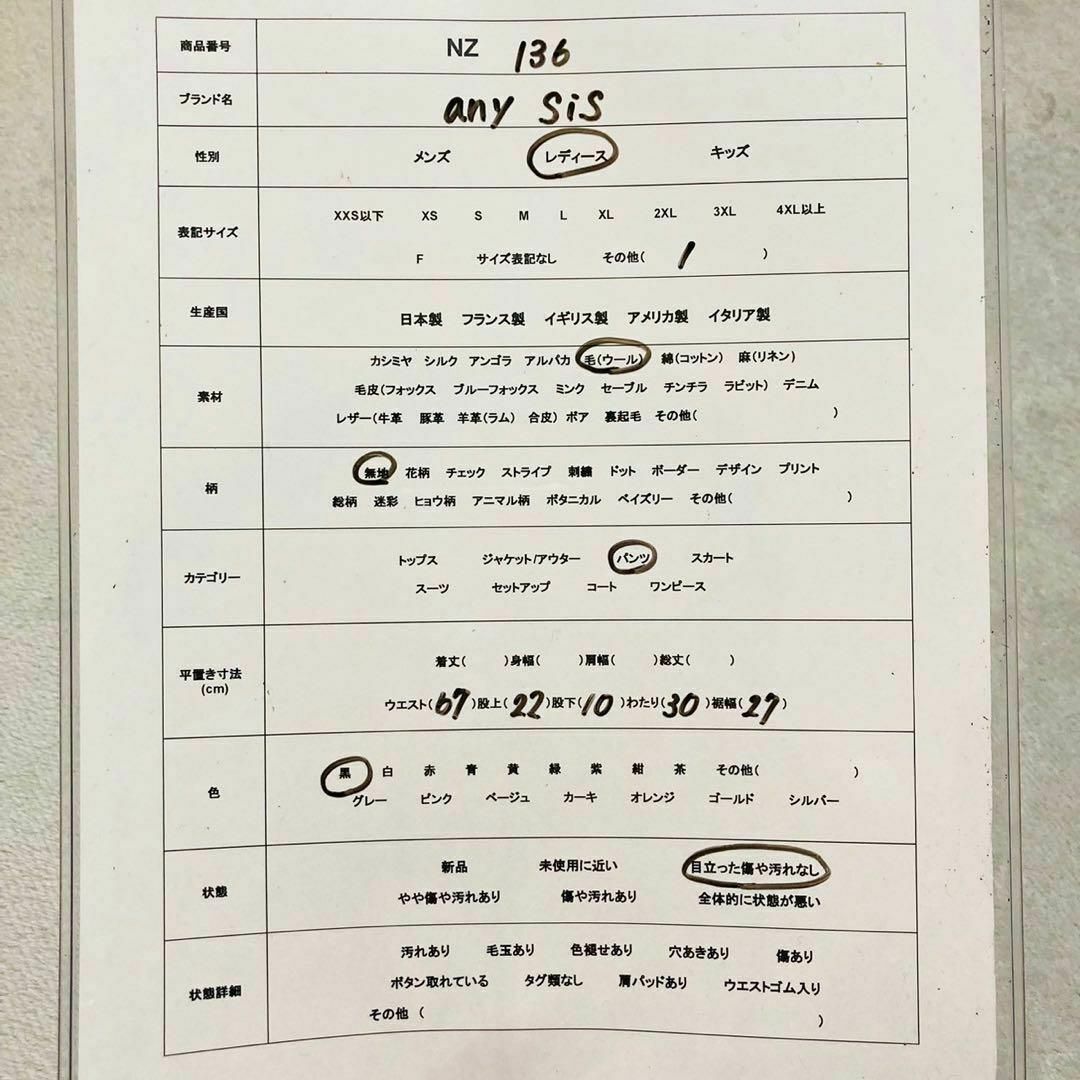 商品番号 NZ 136
ブランド名 any SiS
性別 メンズ レディース キッズ
表記サイズ
XXS以下 XS S M L XL 2XL 3XL 4XL以上
F サイズ表記なし その他( 1 )
生産国 日本製 フランス製 イギリス製 アメリカ製 イタリア製
素材
カシミヤ シルク アンゴラ アルパカ 毛(ウール) 綿(コットン) 麻(リネン)
毛皮(フォックス ブルーフォックス ミンク セーブル チンチラ ラビット) デニム
レザー(牛革 豚革 羊革(ラム) 合皮) ボア 裏起毛 その他( )
柄
無地 花柄 チェック ストライプ 刺繍 ドット ボーダー デザイン プリント
総柄 迷彩 ヒョウ柄 アニマル柄 ボタニカル ペイズリー その他( )
カテゴリー
トップス ジャケット/アウター パンツ スカート
スーツ セットアップ コート ワンピース
平置き寸法
(cm)
着丈( )身幅( )肩幅( )総丈( )
ウエスト(67)股上(22)股下(10)わたり(30)裾幅(27)
色
黒 白 赤 青 黄 緑 紫 紺 茶 その他( )
グレー ピンク ベージュ カーキ オレンジ ゴールド シルバー
状態
新品 未使用に近い 目立った傷や汚れなし
やや傷や汚れあり 傷や汚れあり 全体的に状態が悪い
状態詳細
汚れあり 毛玉あり 色褪せあり 穴あきあり 傷あり
ボタン取れている タグ類なし 肩パッドあり ウエストゴム入り
その他 ( )